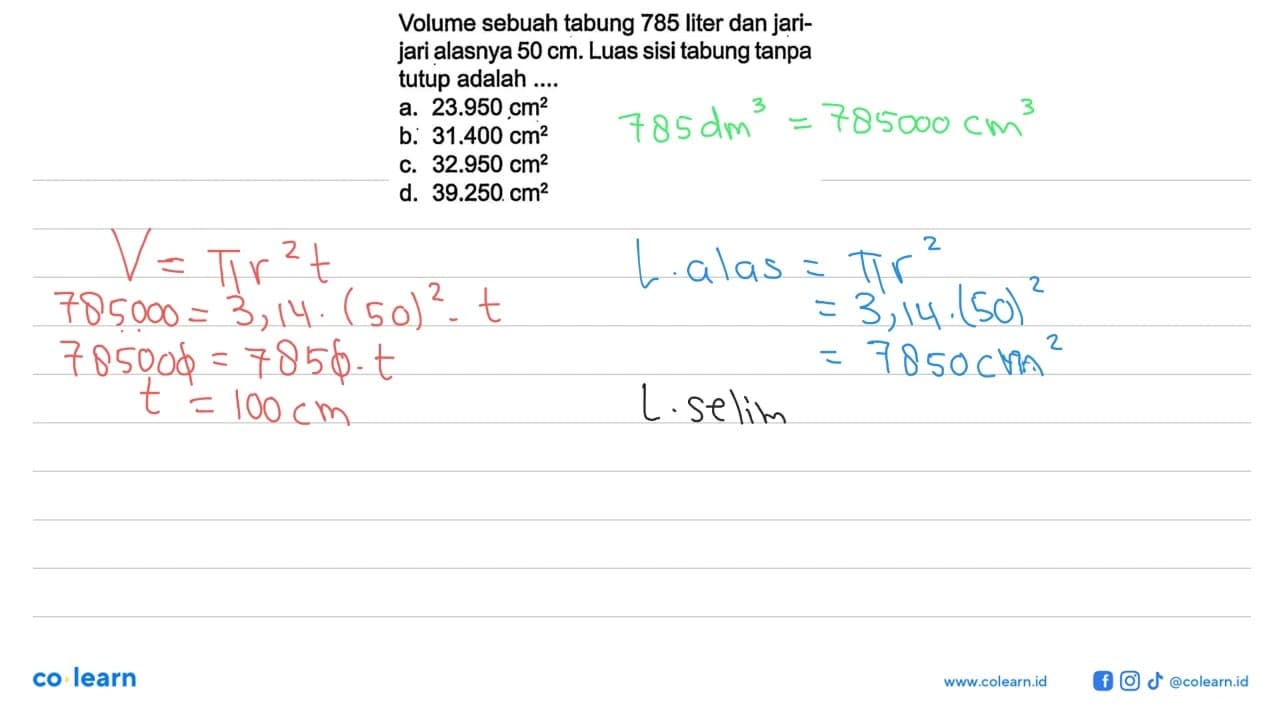 Volume sebuah tabung 785 liter dan jari-
jari alasnya 50 cm. Luas sisi tabung tanpa
tutup adalah ....
a. 23.950 cm²
b. 31.400 cm²
c. 32.950 cm²
d. 39.250 cm²
785 dm³ = 785000 cm³
V = πr²t
785000 = 3,14 . (50)² . t
785000 = 7850 . t
t = 100 cm
L. alas = πr²
= 3,14 . (50)²
= 7850 cm²
L. selim
co learn
www.colearn.id
@colearn.id